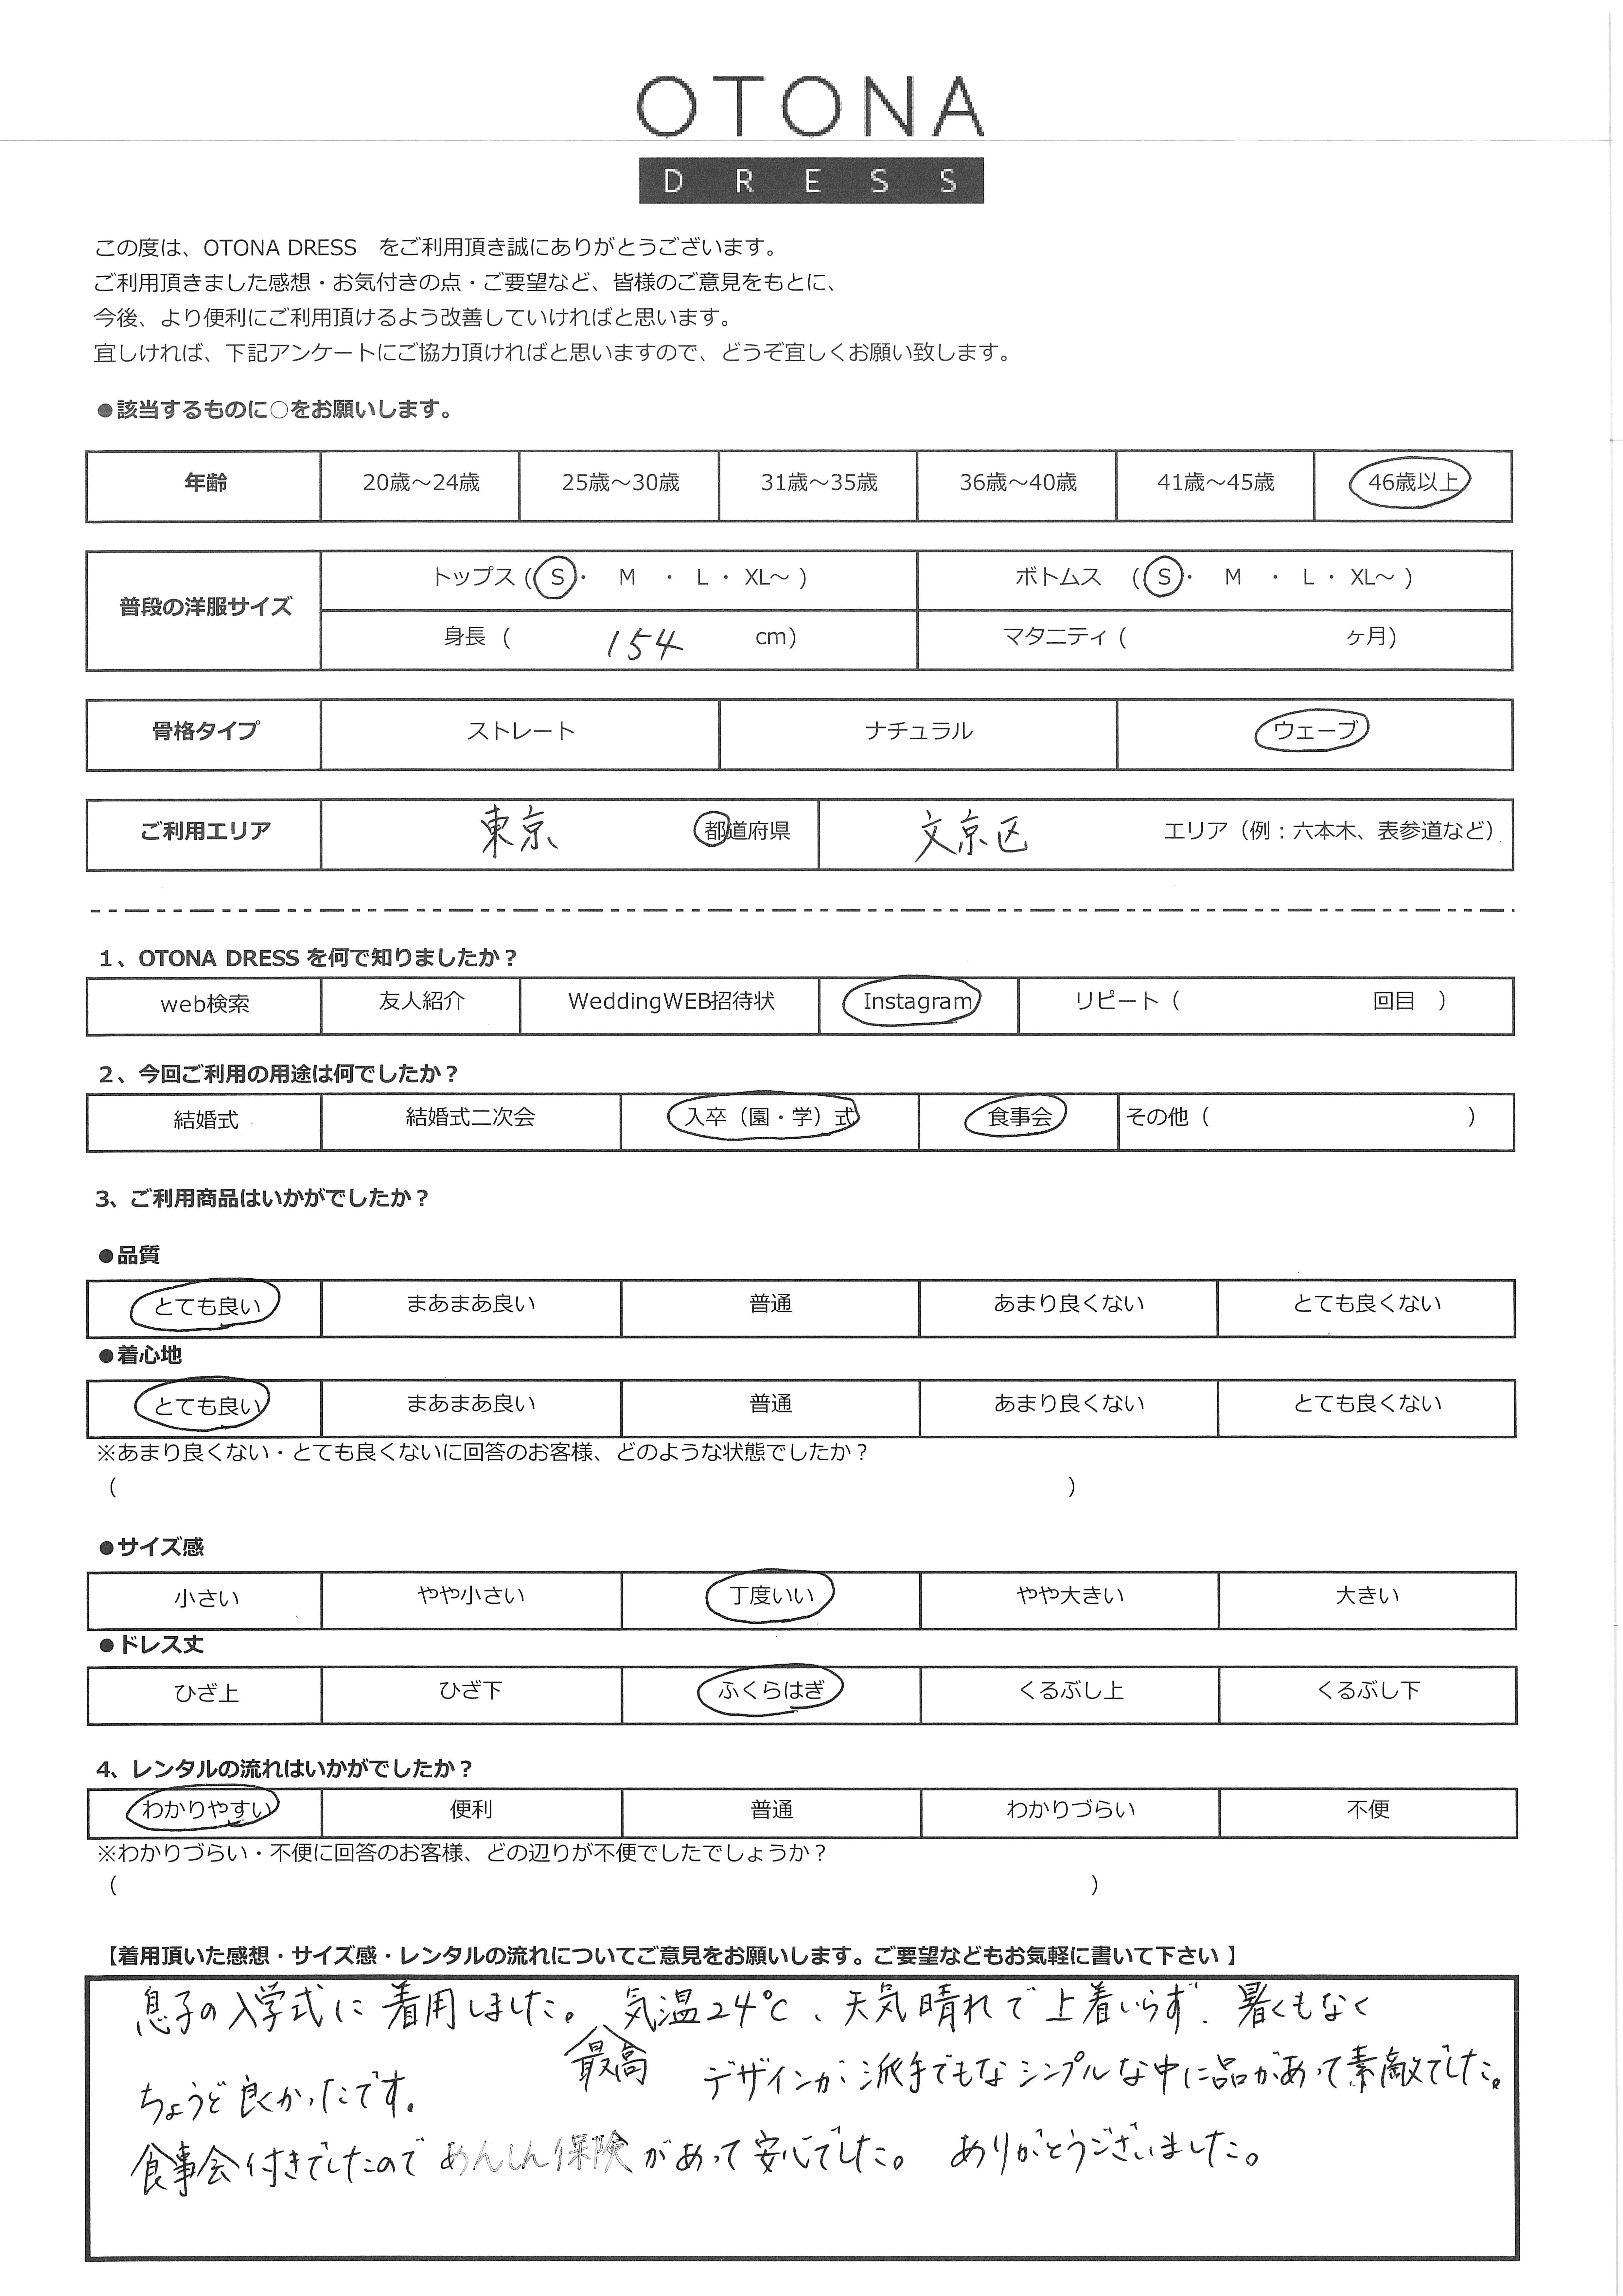 OTONA
DRESS
この度は、OTONA DRESS をご利用頂き誠にありがとうございます。
ご利用頂きました感想・お気付きの点・ご要望など、皆様のご意見をもとに、
今後、より便利にご利用頂けるよう改善していければと思います。
宜しければ、下記アンケートにご協力頂ければと思いますので、どうぞ宜しくお願い致します。
●該当するものに○をお願いします。
年齢 20歳～24歳 25歳～30歳 31歳～35歳 36歳～40歳 41歳～45歳 46歳以上
普段の洋服サイズ トップス (S・ M ・ L・ XL～ ) ボトムス (S・ M ・ L・ XL～ )
身長 ( 154 cm) マタニティ ( ヶ月)
骨格タイプ ストレート ナチュラル ウェーブ
ご利用エリア 東京 都道府県 文京区 エリア（例：六本木、表参道など）
1、OTONA DRESS を何で知りましたか？
web検索 友人紹介 WeddingWEB招待状 Instagram リピート（ 回目 ）
2、今回ご利用の用途は何でしたか？
結婚式 結婚式二次会 入卒（園・学）式 食事会 その他（ ）
3、ご利用商品はいかがでしたか？
●品質
とても良い まあまあ良い 普通 あまり良くない とても良くない
●着心地
とても良い まあまあ良い 普通 あまり良くない とても良くない
※あまり良くない・とても良くないに回答のお客様、どのような状態でしたか？
（ ）
●サイズ感
小さい やや小さい 丁度いい やや大きい 大きい
●ドレス丈
ひざ上 ひざ下 ふくらはぎ くるぶし上 くるぶし下
4、レンタルの流れはいかがでしたか？
わかりやすい 便利 普通 わかりづらい 不便
※わかりづらい・不便に回答のお客様、どの辺りが不便でしたでしょうか？
（ ）
【着用頂いた感想・サイズ感・レンタルの流れについてご意見をお願いします。ご要望などもお気軽に書いて下さい 】
息子の入学式に着用しました。 気温24℃、天気晴れで上着いらず、暑くもなく
ちょうど良かったです。 最高 デザインが派手でもなシンプルな中に品があって素敵でした。
食事会付きでしたので あんしん保険 があって安心でした。 ありがとうございました。